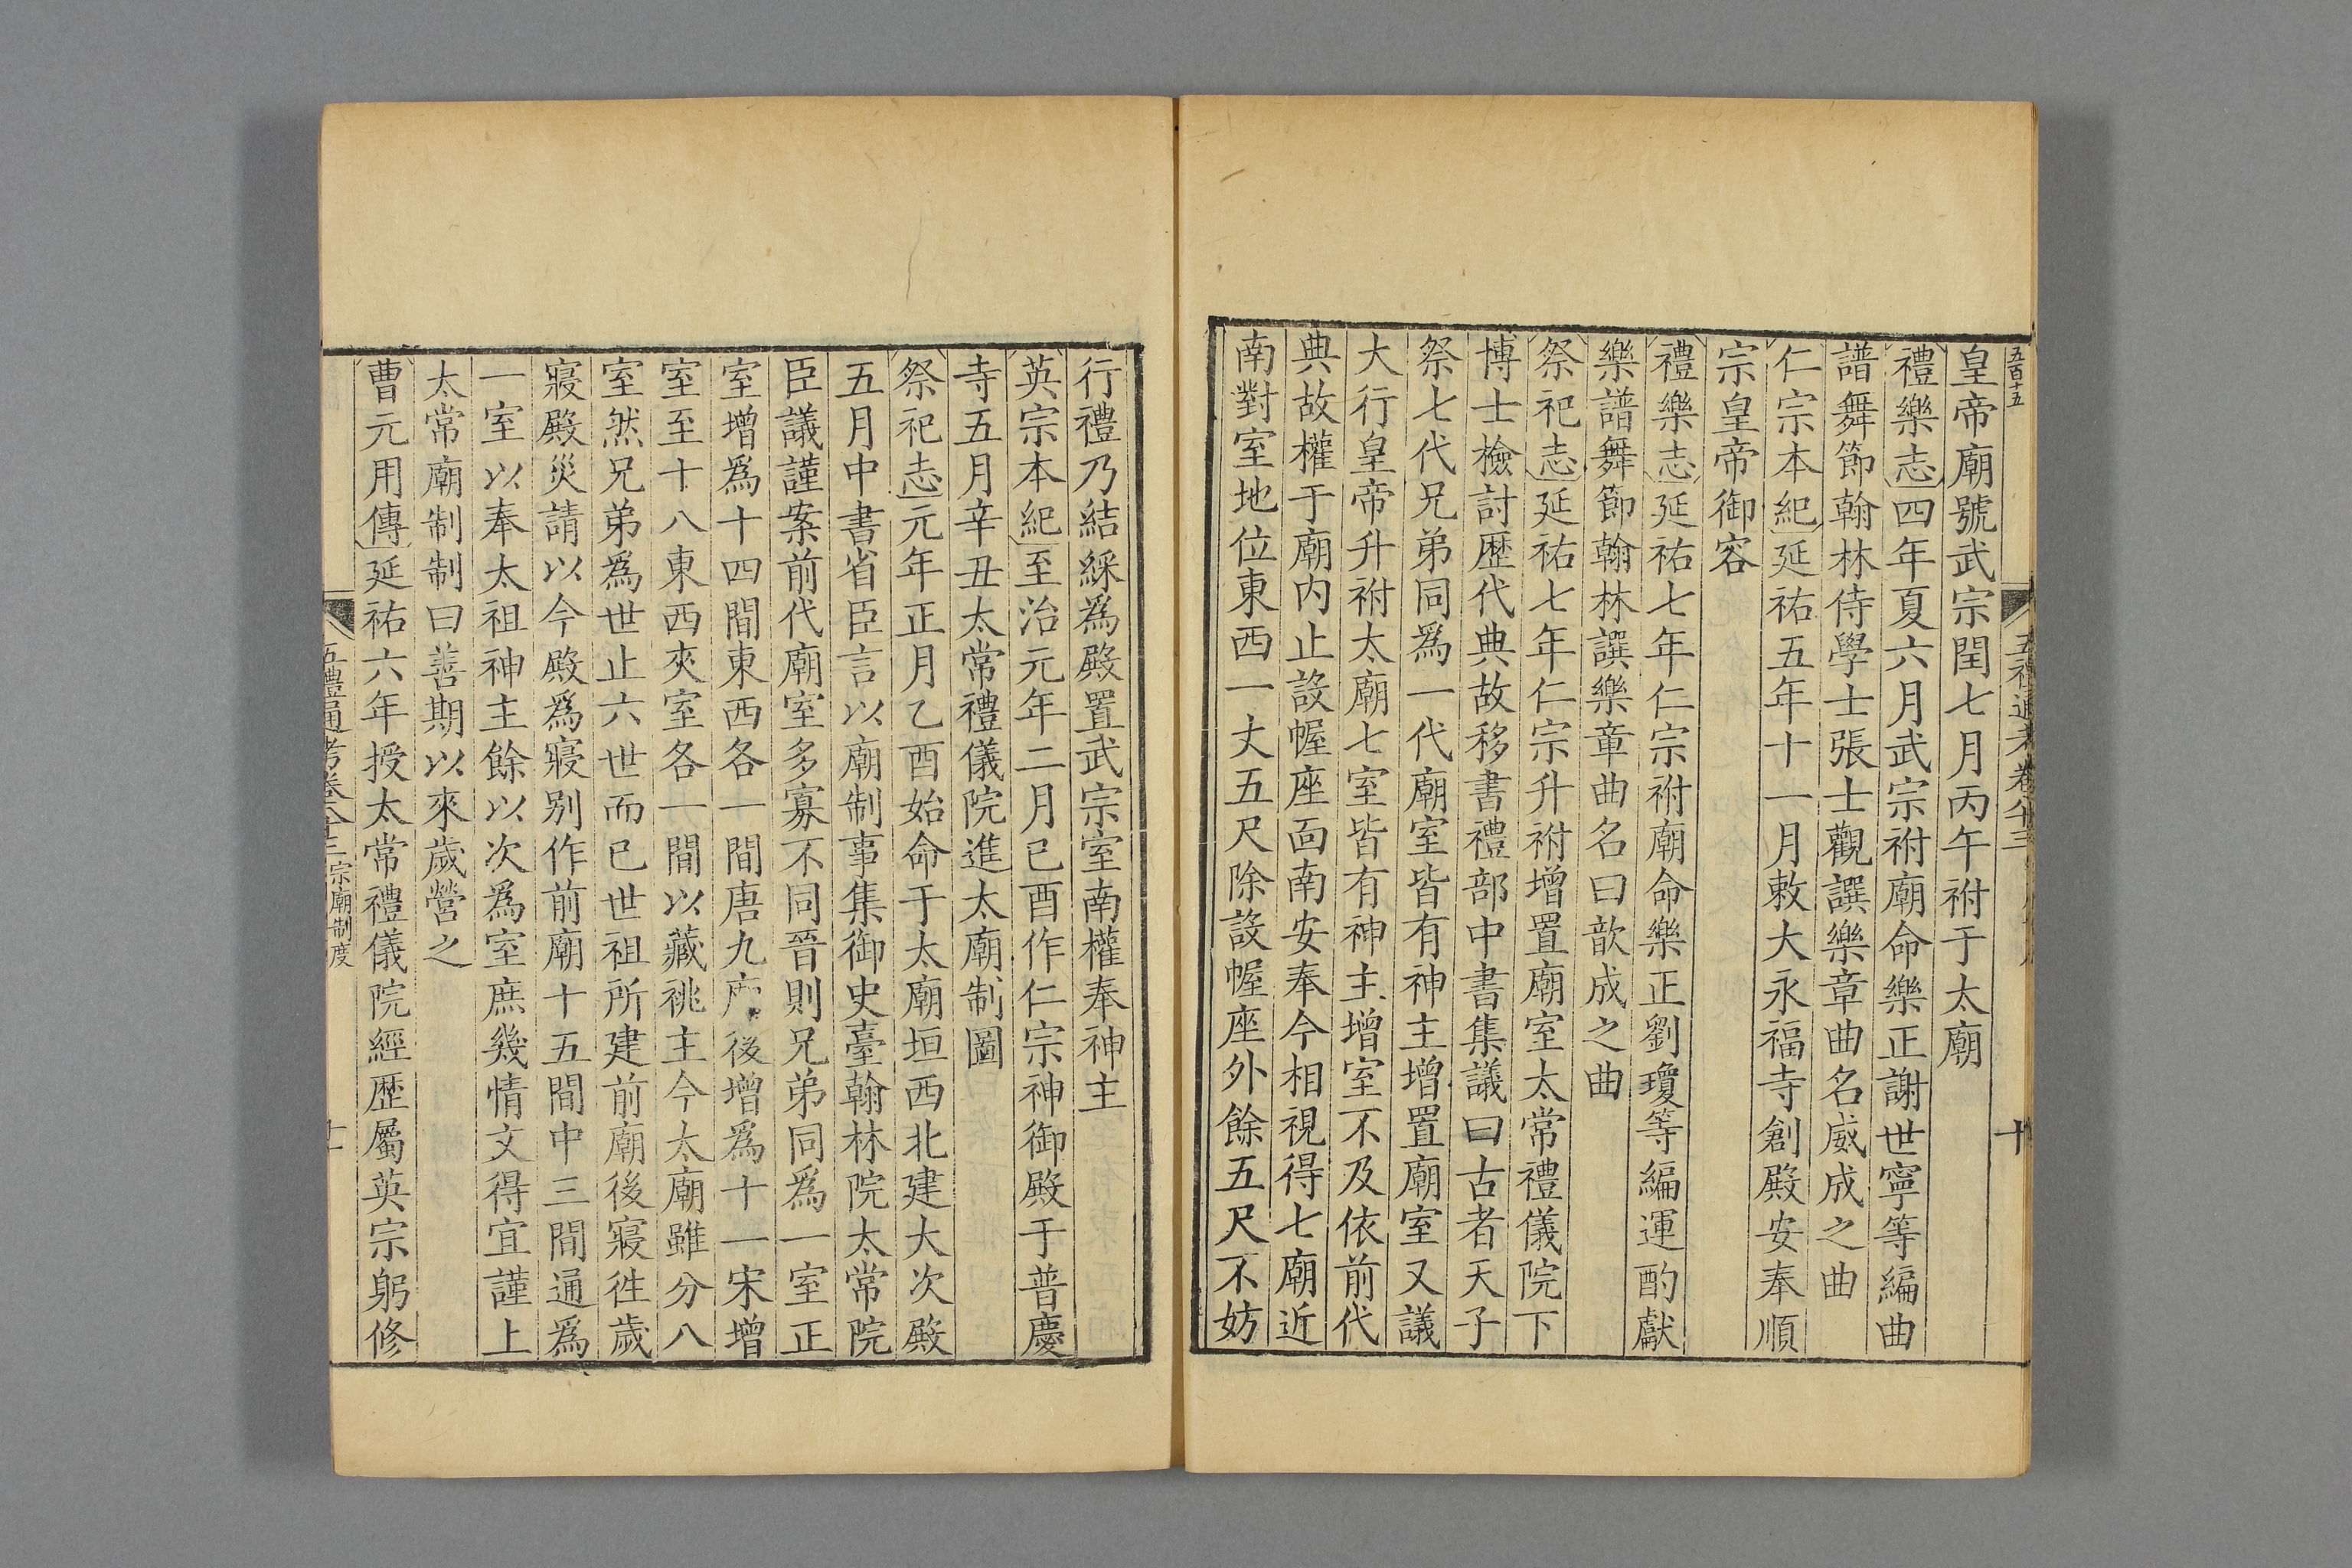 五百十五
十
皇帝廟號武宗閏七月丙午祔于太廟
禮樂志四年夏六月武宗祔廟命樂正謝世寧等編曲
譜舞節翰林侍學士張士觀譔樂章曲名威成之曲
仁宗本紀延祐五年十一月敕大永福寺創殿安奉順
宗皇帝御容
禮樂志延祐七年仁宗祔廟命樂正劉瓊等編運酌獻
樂譜舞節翰林譔樂章曲名曰歆成之曲
祭祀志延祐七年仁宗升祔增置廟室太常禮儀院下
博士檢討歷代典故移書禮部中書集議曰古者天子
祭七代兄弟同爲一代廟室皆有神主增置廟室又議
大行皇帝升祔太廟七室皆有神主增室不及依前代
典故權于廟内止設幄座面南安奉今相視得七廟近
南對室地位東西一丈五尺除設幄座外餘五尺不妨
行禮乃結綵爲殿置武宗室南權奉神主
英宗本紀至治元年二月己酉作仁宗神御殿于普慶
寺五月辛丑太常禮儀院進太廟制圖
祭祀志元年正月乙酉始命于太廟垣西北建大次殿
五月中書省臣言以廟制事集御史臺翰林院太常院
臣議謹案前代廟室多寡不同晉則兄弟同爲一室正
室增爲十四間東西各一間唐九廟後增爲十一宋增
室至十八東西夾室各一間以藏祧主今太廟雖分八
室然兄弟爲世止六世而已世祖所建前廟後寢徃歲
寢殿災請以今殿爲寢别作前廟十五間中三間通爲
一室以奉太祖神主餘以次爲室庶幾情文得宜謹上
太常廟制制曰善期以來歲營之
曹元用傳延祐六年授太常禮儀院經歷屬英宗躬修
五禮通考卷八十二 宗廟制度